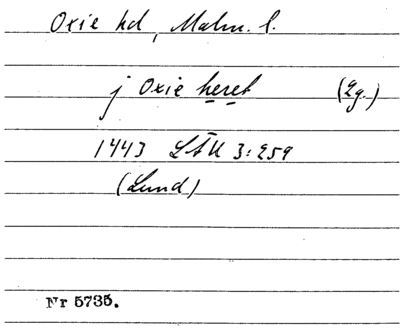 Oxie hd, Malm. l.
j Oxie heret (Lg.)
1443 LÄU 3:259
(Lund)
Nr 5735.